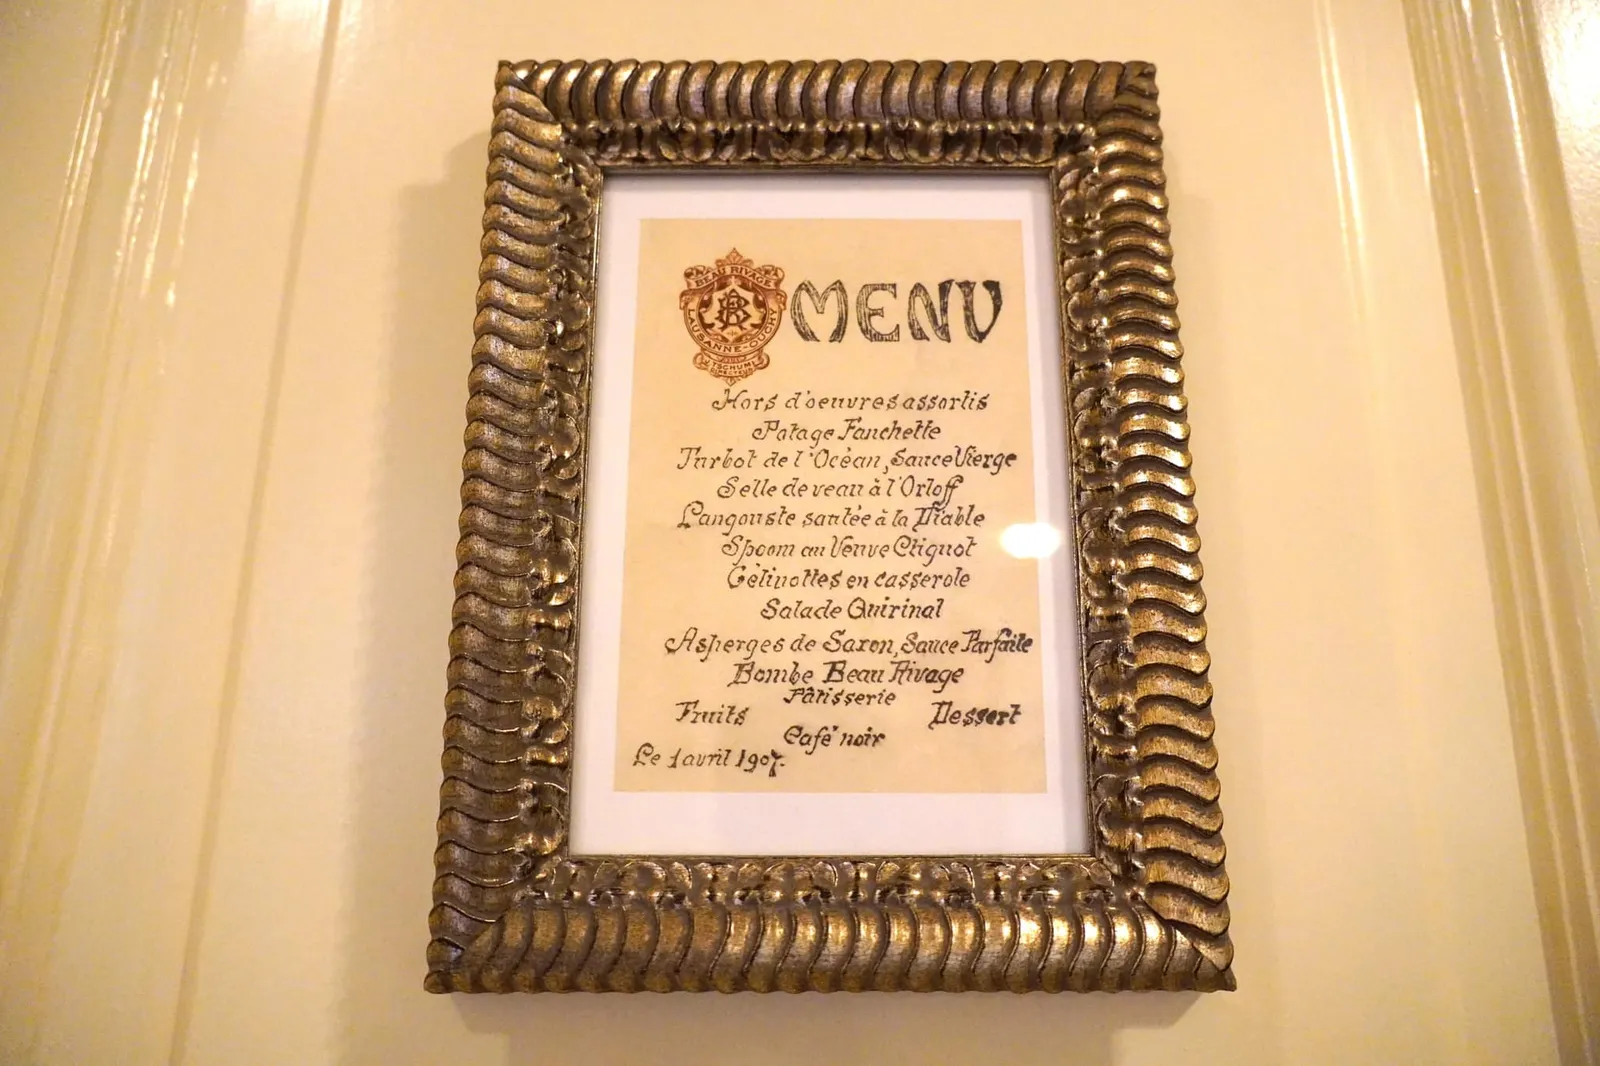 BEAU RIVAGE
LAUSANNE-OUCHY
J. TSCHUMI
DIRECTEUR
MENU
Hors d'oeuvres assortis
Potage Fanchette
Turbot de l'Océan, Sauce Vierge
Selle de veau à l'Orloff
Langouste sautée à la Diable
Spoom au Veuve Cliquot
Gélinottes en casserole
Salade Quirinal
Asperges de Saxon, Sauce Parfaite
Bombe Beau Rivage
Pâtisserie
Fruits Dessert
Café noir
Le 1 avril 1907.